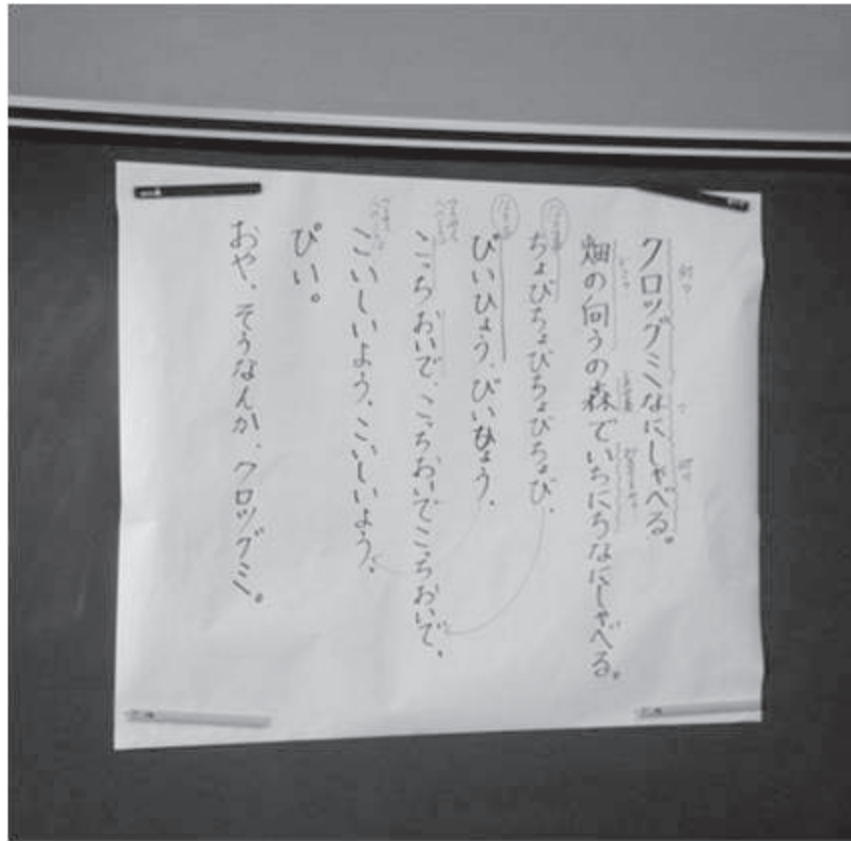 クロツグミなにしゃべる。
畑の向うの森でいちにちなにしゃべる。
ちょびちょびちょびちょび、
びいひょう、びいひょう、
こっちおいで、こっちおいでこっちおいで、
こいしいよう、こいしいよう、
ぴい。
おや、そうなんか、クロツグミ。